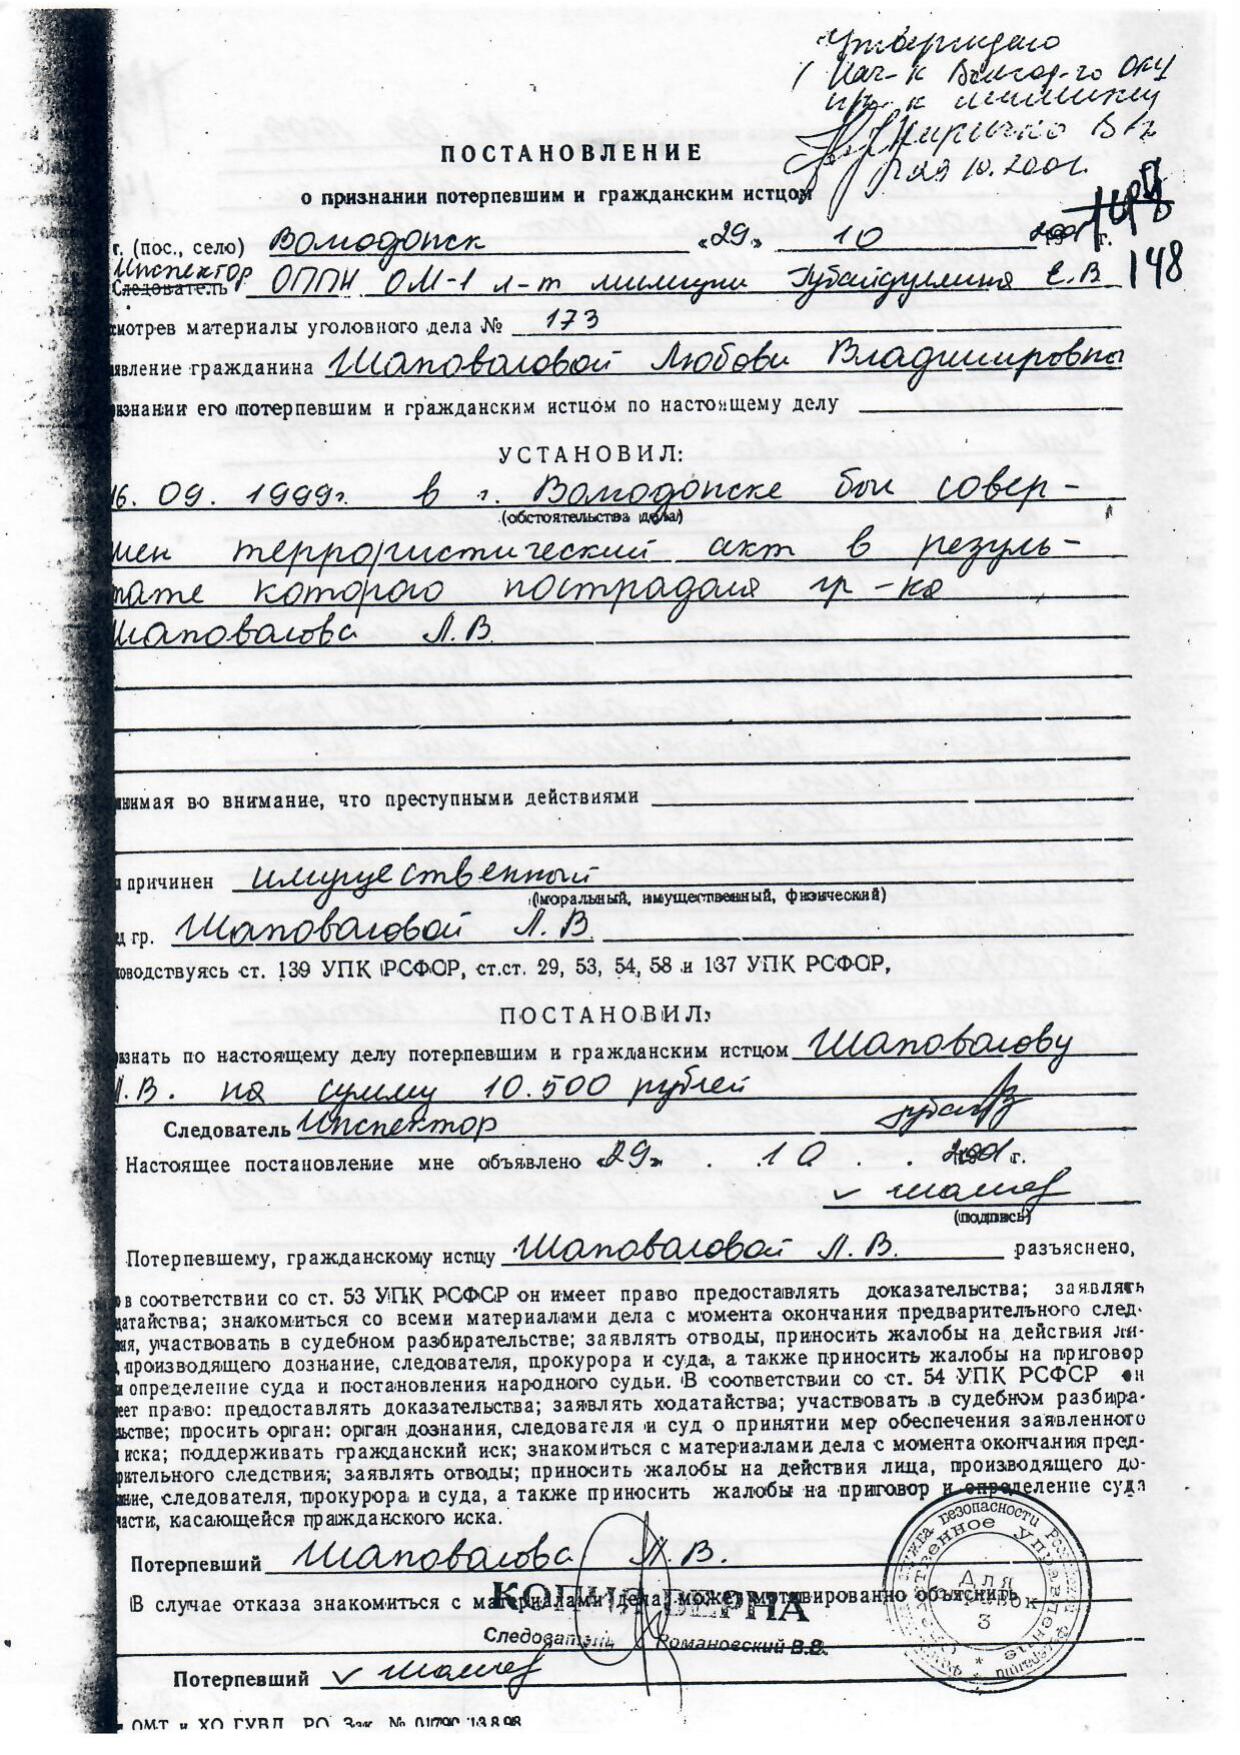 Утверждаю
Нач-к Волгод-го ОВД
п/п-к милиции
Киричко В.В.
29.10.2001.
ПОСТАНОВЛЕНИЕ
о признании потерпевшим и гражданским истцом
148
г. (пос., село) Волгодонск «29» 10 2001 г.
148
Инспектор
Следователь ОППН ОМ-1 л-т милиции Губайдуллина Е.В
смотрев материалы уголовного дела № 173
явление гражданина Шаповаловой Любови Владимировны
изнании его потерпевшим и гражданским истцом по настоящему делу
УСТАНОВИЛ:
16. 09. 1999г. в г. Волгодонске был совер-
(обстоятельства дела)
шен террористический акт в резуль-
тате которого пострадала гр-ка
Шаповалова Л.В.
инимая во внимание, что преступными действиями
причинен имущественный
(моральный, имущественный, физический)
д гр. Шаповаловой Л.В.
оводствуясь ст. 139 УПК РСФСР, ст.ст. 29, 53, 54, 58 и 137 УПК РСФСР,
ПОСТАНОВИЛ:
изнать по настоящему делу потерпевшим и гражданским истцом Шаповалову
Л.В. на сумму 10.500 рублей
Следователь Инспектор
Настоящее постановление мне объявлено «29» . 10 . 2001 г.
(подпись)
Потерпевшему, гражданскому истцу Шаповаловой Л.В. разъяснено,
в соответствии со ст. 53 УПК РСФСР он имеет право предоставлять доказательства; заявлять
датайства; знакомиться со всеми материалами дела с момента окончания предварительного след-
ия, участвовать в судебном разбирательстве; заявлять отводы, приносить жалобы на действия ли-
производящего дознание, следователя, прокурора и суда, а также приносить жалобы на приговор
и определение суда и постановления народного судьи. В соответствии со ст. 54 УПК РСФСР он
еет право: предоставлять доказательства; заявлять ходатайства; участвовать в судебном разбира-
льстве; просить орган: орган дознания, следователя и суд о принятии мер обеспечения заявленного
иска; поддерживать гражданский иск; знакомиться с материалами дела с момента окончания пред-
рительного следствия; заявлять отводы; приносить жалобы на действия лица, производящего до-
ние, следователя, прокурора и суда, а также приносить жалобы на приговор и определение суда
части, касающейся гражданского иска.
Потерпевший Шаповалова Л.В.
В случае отказа знакомиться с материалами дела, может мотивированно объяснить
КОПИЯ ВЕРНА
Следователь Романовский В.В.
Для
справок
3
Потерпевший
ОМТ и ХО ГУВД РО Зак. № 01790 13.8.98